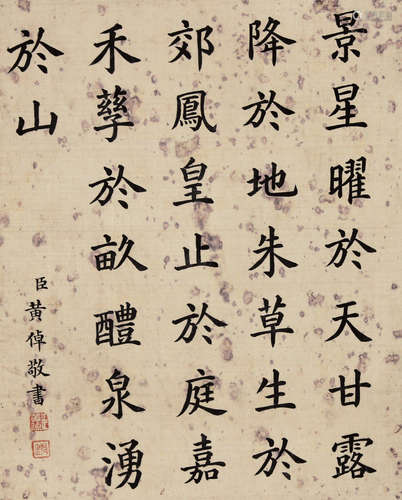 景星曜於天甘露
降於地朱草生於
郊鳳皇止於庭嘉
禾孳於畝醴泉湧
於山
臣黃倬敬書